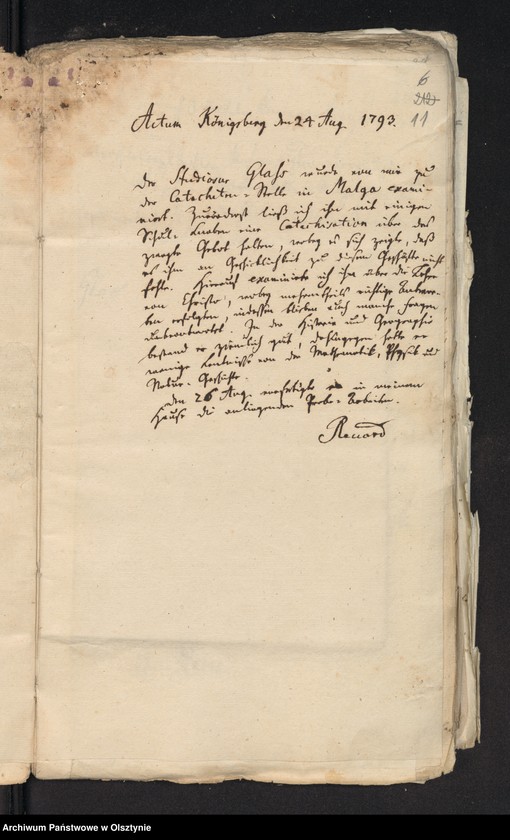 6
212
11
Actum Königsberg den 24 Aug. 1793.
Der Studiosus Glass wurde von mir zu
der Catecheten-Stelle in Malga exami-
niert. Zuvörderst ließ ich ihn mit einigen
Schul-Knaben eine Catechisation über das
zweyte Gebot halten, wobey es sich zeigte, daß
es ihm an Geschicklichkeit zu diesem Geschäfte nicht
fehle. Hierauf examinirte ich ihn über die Lehre
von Christo, wobey mehrentheils richtige Antwor-
ten erfolgten, indessen blieben auch manche Fragen
unbeantwortet. In der Historie und Geographie
bestand er ziemlich gut, dahingegen hatte er
wenige Kentnisse von der Mathematik, Physik und
Natur-Geschichte.
Den 26 Aug. verfertigte er in meinem
Hause die anliegenden Probe-Arbeiten.
Archiwum Państwowe w Olsztynie